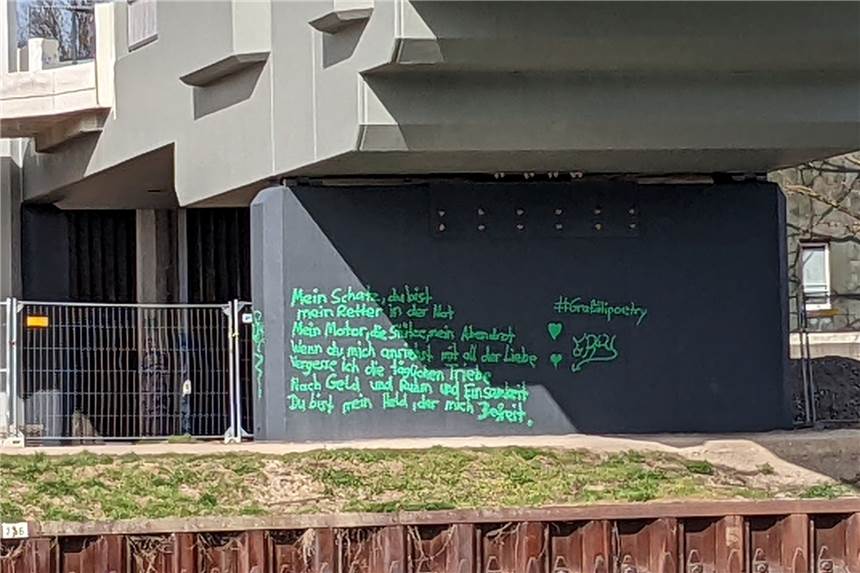 Mein Schatz, du bist
mein Retter in der Not
Mein Motor, die Stütze, mein Abendrot
Wenn du mich ansiehst mit all der Liebe
Vergesse ich die täglichen Triebe
Nach Geld und Ruhm und Einsamkeit
Du bist mein Held, der mich Befreit.
#Graffitipoetry